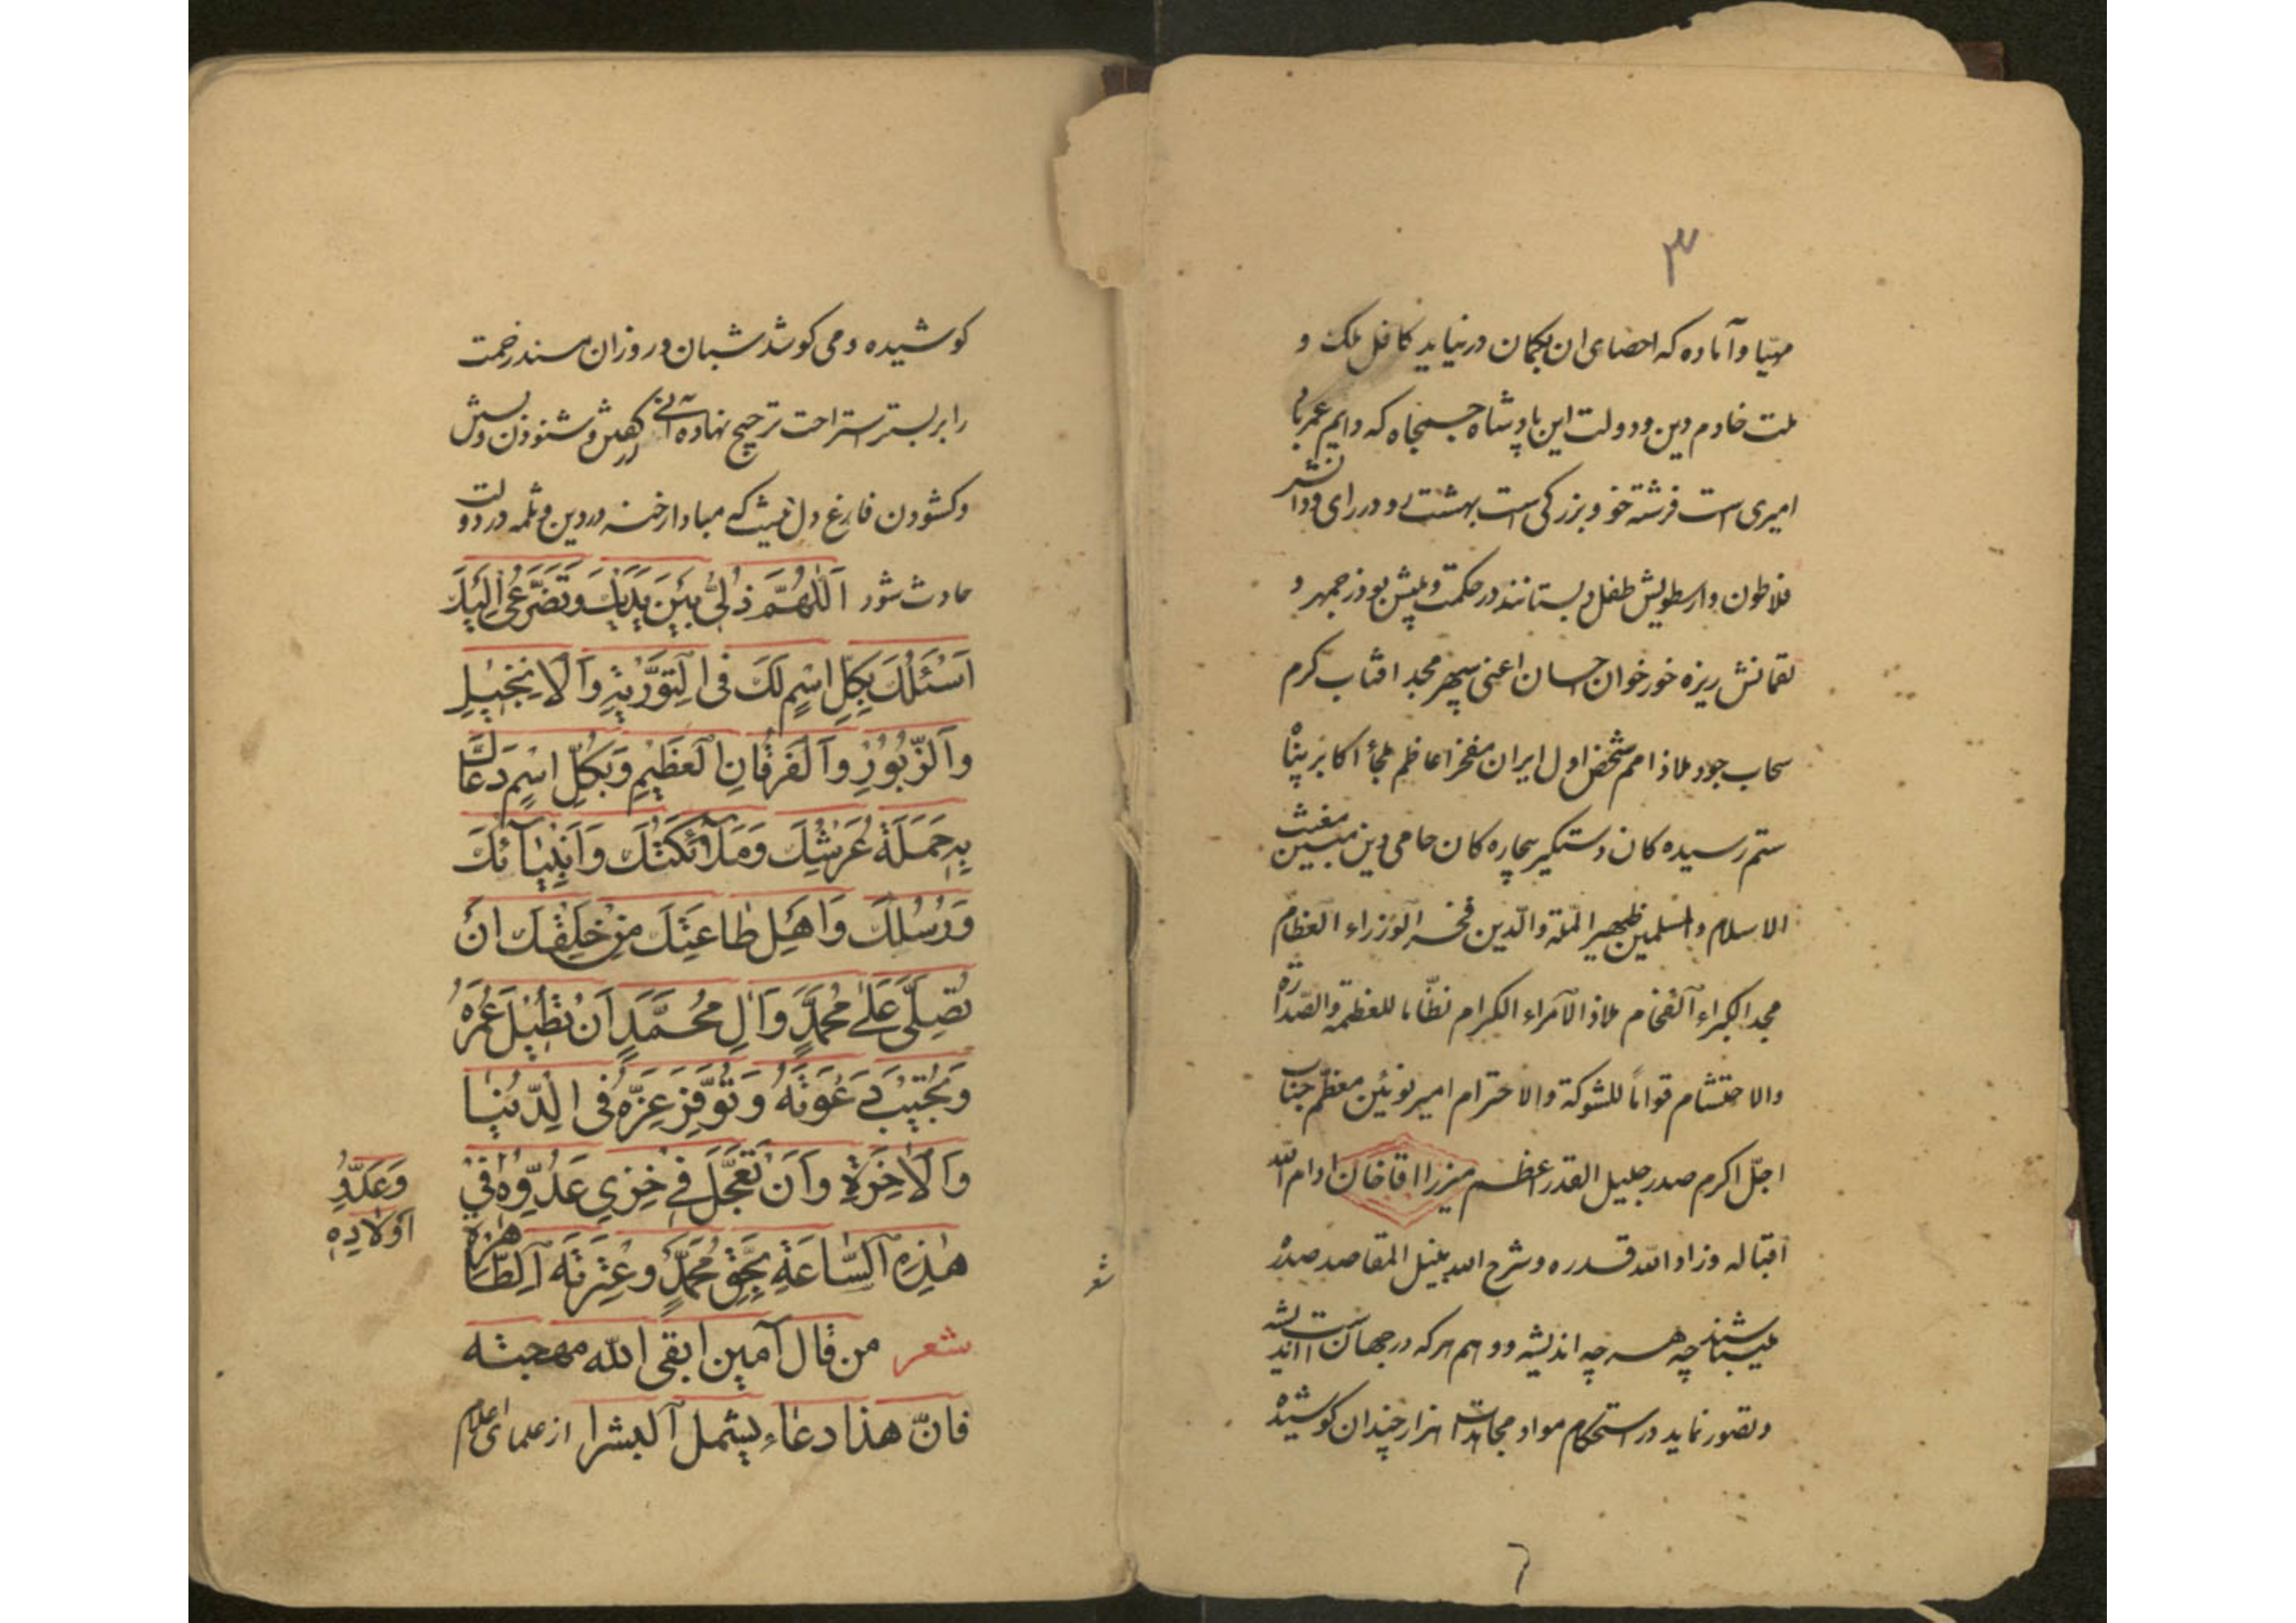 ۳
مهیّا و آماده که احصای ان بکمان درنیاید کافل ملک و
ملت خادم دین و دولت این پادشاه جمجاه که دایم عمر باد
امیری است فرشته خو و بزرکی است بهشتے رو در رای و دانش
فلاطون و ارسطویش طفل دبستانند در حکمت و پیش بوذرجمهر و
لقمانش ریزه خور خوان احسان اعنی سپهر مجد افتاب کرم
سحاب جود ملاذ امم شخص اول ایران مفخر اعاظم ملجأ اکابر پناه
ستم رسیده کان دستکیر بیچاره کان حامی دین مبین مغیث
الاسلام و المسلمین ظهیر الملّة والدّین فخر الوزراء العظام
مجد الکبراء الفخام ملاذ الامراء الکرام نظّاما للعظمة والصّدارة
والاحتشام قواماً للشوکة والاحترام امیر نوئین معظّم جناب
اجلّ اکرم صدر جلیل القدر اعظم میرزا اقا خان ادام الله
اقباله وزاد الله قدره وشرح الله بنیل المقاصد صدره
میباشند چه هر چه اندیشه و وهم هر که در جهان است اندیشه
و تصور نماید در استحکام مواد مجاهدت هزار چندان کوشیده
۶
کوشیده و می کوشد شبان و روزان مسند زحمت
را بر بستر استراحت ترجیح نهاده آنی از کفتن و شنودن و بستن
و کشودن فارغ دل نیست که مبادا رخنه در دین و ثلمه در دولت
حادث شود اَللّهُمَّ ذُلّی بَیْنَ یَدَیْكَ وَتَضَرُّعی اِلَیْكَ
اَسْئَلُكَ بِکُلِّ اسْمٍ لَكَ فی التَّوْریٰةِ وَالْاِنْجیلِ
وَالزَّبُوْرِ وَالْفُرْقٰانِ الْعَظیمِ وَبِکُلِّ اسْمٍ دَعٰاكَ
بِهِ حَمَلَةُ عَرْشِكَ وَمَلٰٓائِکَتُكَ وَاَنْبِیٰآئُكَ
وَرُسُلُكَ وَاَهْلِ طٰاعَتِكَ مِنْ خَلْقِكَ اَنْ
تُصَلِّیَ عَلٰی مُحَمَّدٍ وَاٰلِ مُحَمَّدٍ اَنْ تُطیلَ عُمْرَهُ
وَتُجیبَ دَعْوَتَهُ وَتُوَفِّرَ عِزَّهُ فی الدُّنْیٰا
وَالْاٰخِرَةِ وَاَنْ تُعَجِّلَ فی خِزْیِ عَدُوِّهِ فی
وَعَدُوِّ
اَوْلادِهِ
هٰذِهِ السّٰاعَةِ بِحَقِّ مُحَمَّدٍ وَعِتْرَتِهِ الطّٰاهِرَة
شعر من قال آمین ابقی الله مهجته
فانّ هذا دعاء یشمل البشرا از علمای اعلام